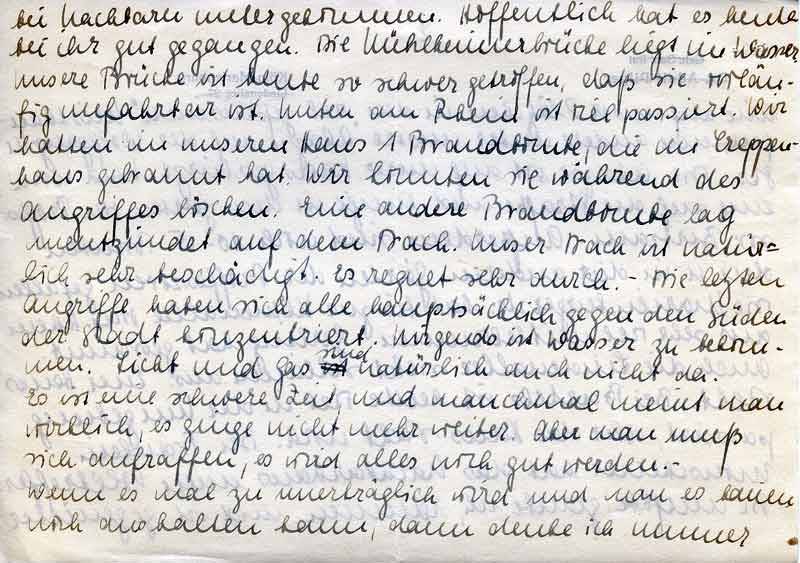 bei Nachbarn untergekommen. Hoffentlich hat es heute
bei ihr gut gegangen. Die Mühlheimerbrücke liegt im Wasser
unsere Brücke ist heute so schwer getroffen, daß sie vorläu-
fig unfahrbar ist. Unten am Rhein ist viel passiert. Wir
hatten in unseren Haus 1 Brandbombe, die im Treppen-
haus gebrannt hat. Wir konnten sie während des
Angriffes löschen. Eine andere Brandbombe lag
unentzündet auf dem Dach. Unser Dach ist natür=
lich sehr beschädigt. Es regnet sehr durch. - Die letzten
Angriffe haben sich alle hauptsächlich gegen den Süden
der Stadt konzentriert. Nirgends ist Wasser zu bekom-
men. Licht und Gas sind natürlich auch nicht da.
Es ist eine schwere Zeit, und manchmal meint man
wirklich, es ginge nicht mehr weiter. Aber man muß
sich aufraffen, es wird alles noch gut werden. -
Wenn es mal zu unerträglich wird und man es kaum
noch aushalten kann, dann denke ich immer